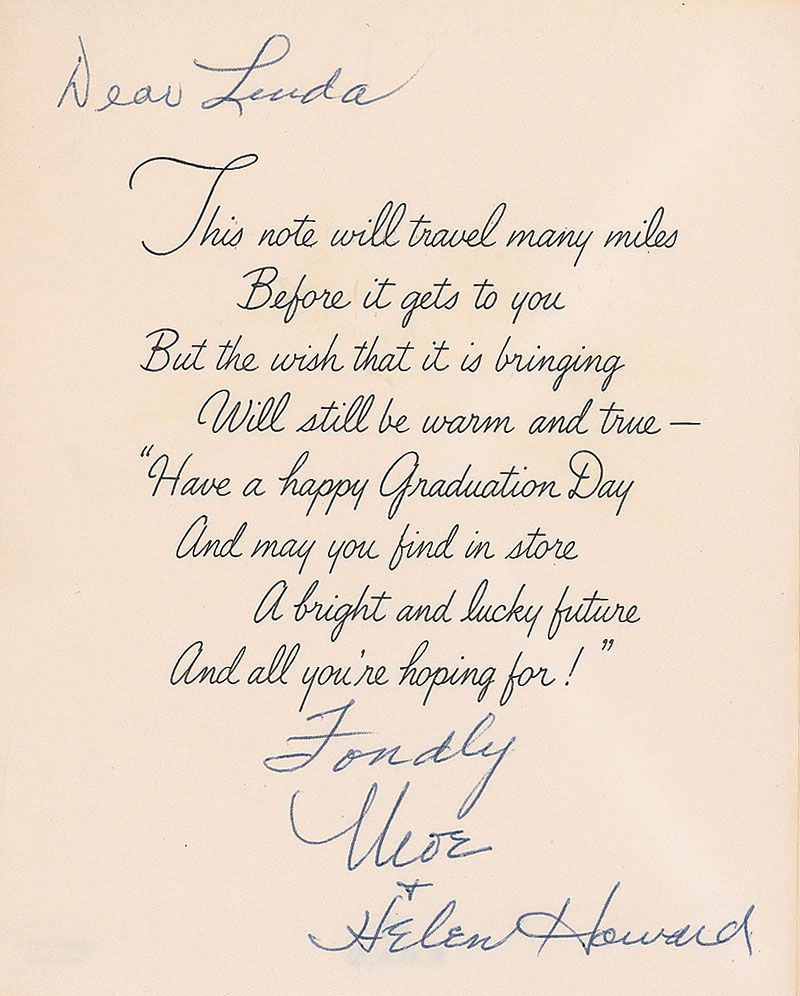 Dear Linda
This note will travel many miles
Before it gets to you
But the wish that it is bringing
Will still be warm and true —
"Have a happy Graduation Day
And may you find in store
A bright and lucky future
And all you're hoping for!"
Fondly
Moe
+
Helen Howard